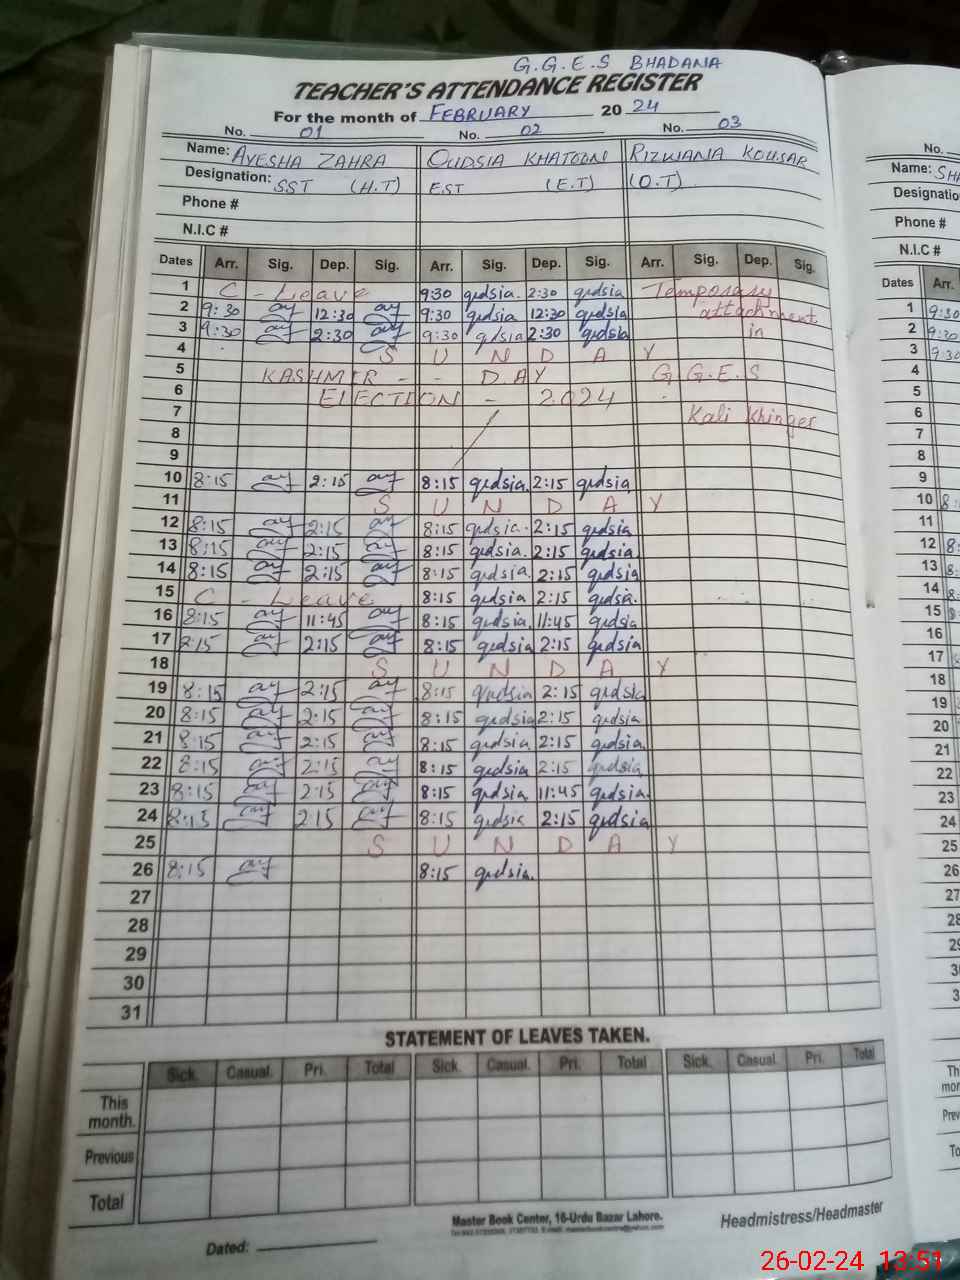 G.G.E.S BHADANA
TEACHER'S ATTENDANCE REGISTER
For the month of FEBRUARY 2024
No. 01 No. 02 No. 03
Name: AYESHA ZAHRA QUDSIA KHATOON RIZWANA KOUSAR
Designation: SST (H.T) EST (E.T) (O.T)
Phone #
N.I.C #
Dates Arr. Sig. Dep. Sig. Arr. Sig. Dep. Sig. Arr. Sig. Dep. Sig.
1 C - Leave 9:30 qudsia. 2:30 qudsia Temporary
2 9:30 ay 12:30 ay 9:30 qudsia 12:30 qudsia attachment
3 9:30 ay 2:30 ay 9:30 qudsia 2:30 qudsia in
4 S U N D A Y
5 KASHMIR - - DAY G.G.E.S
6 ELECTION - 2024
7 Kali Khinger
8
9
10 8:15 ay 2:15 ay 8:15 qudsia. 2:15 qudsia
11 S U N D A Y
12 8:15 ay 2:15 ay 8:15 qudsia. 2:15 qudsia
13 8:15 ay 2:15 ay 8:15 qudsia. 2:15 qudsia
14 8:15 ay 2:15 ay 8:15 qudsia. 2:15 qudsia
15 C - Leave 8:15 qudsia 2:15 qudsia.
16 8:15 ay 11:45 ay 8:15 qudsia. 11:45 qudsia
17 2:15 ay 2:15 ay 8:15 qudsia 2:15 qudsia
18 S U N D A Y
19 8:15 ay 2:15 ay 8:15 qudsia 2:15 qudsia
20 8:15 ay 2:15 ay 8:15 qudsia 2:15 qudsia
21 8:15 ay 2:15 ay 8:15 qudsia 2:15 qudsia.
22 8:15 ay 2:15 ay 8:15 qudsia 2:15 qudsia
23 8:15 ay 2:15 ay 8:15 qudsia 11:45 qudsia.
24 8:15 ay 2:15 ay 8:15 qudsia 2:15 qudsia
25 S U N D A Y
26 8:15 ay 8:15 qudsia.
27
28
29
30
31
STATEMENT OF LEAVES TAKEN.
Sick. Casual. Pri. Total Sick. Casual. Pri. Total Sick. Casual. Pri. Total
This month.
Previous
Total
Master Book Center, 16-Urdu Bazar Lahore.
Headmistress/Headmaster
Dated:
No.
Name: SHA
Designatio
Phone #
N.I.C #
Dates Arr.
1 9:30
2 9:30
3 9:30
4
5
6
7
8
9
10 8:
11
12 8:
13 8:
14 8:
15 8:
16
17
18
19
20
21
22
23
24
25
26
27
28
29
3
3
Th
mon
Prev
To
26-02-24 13:51